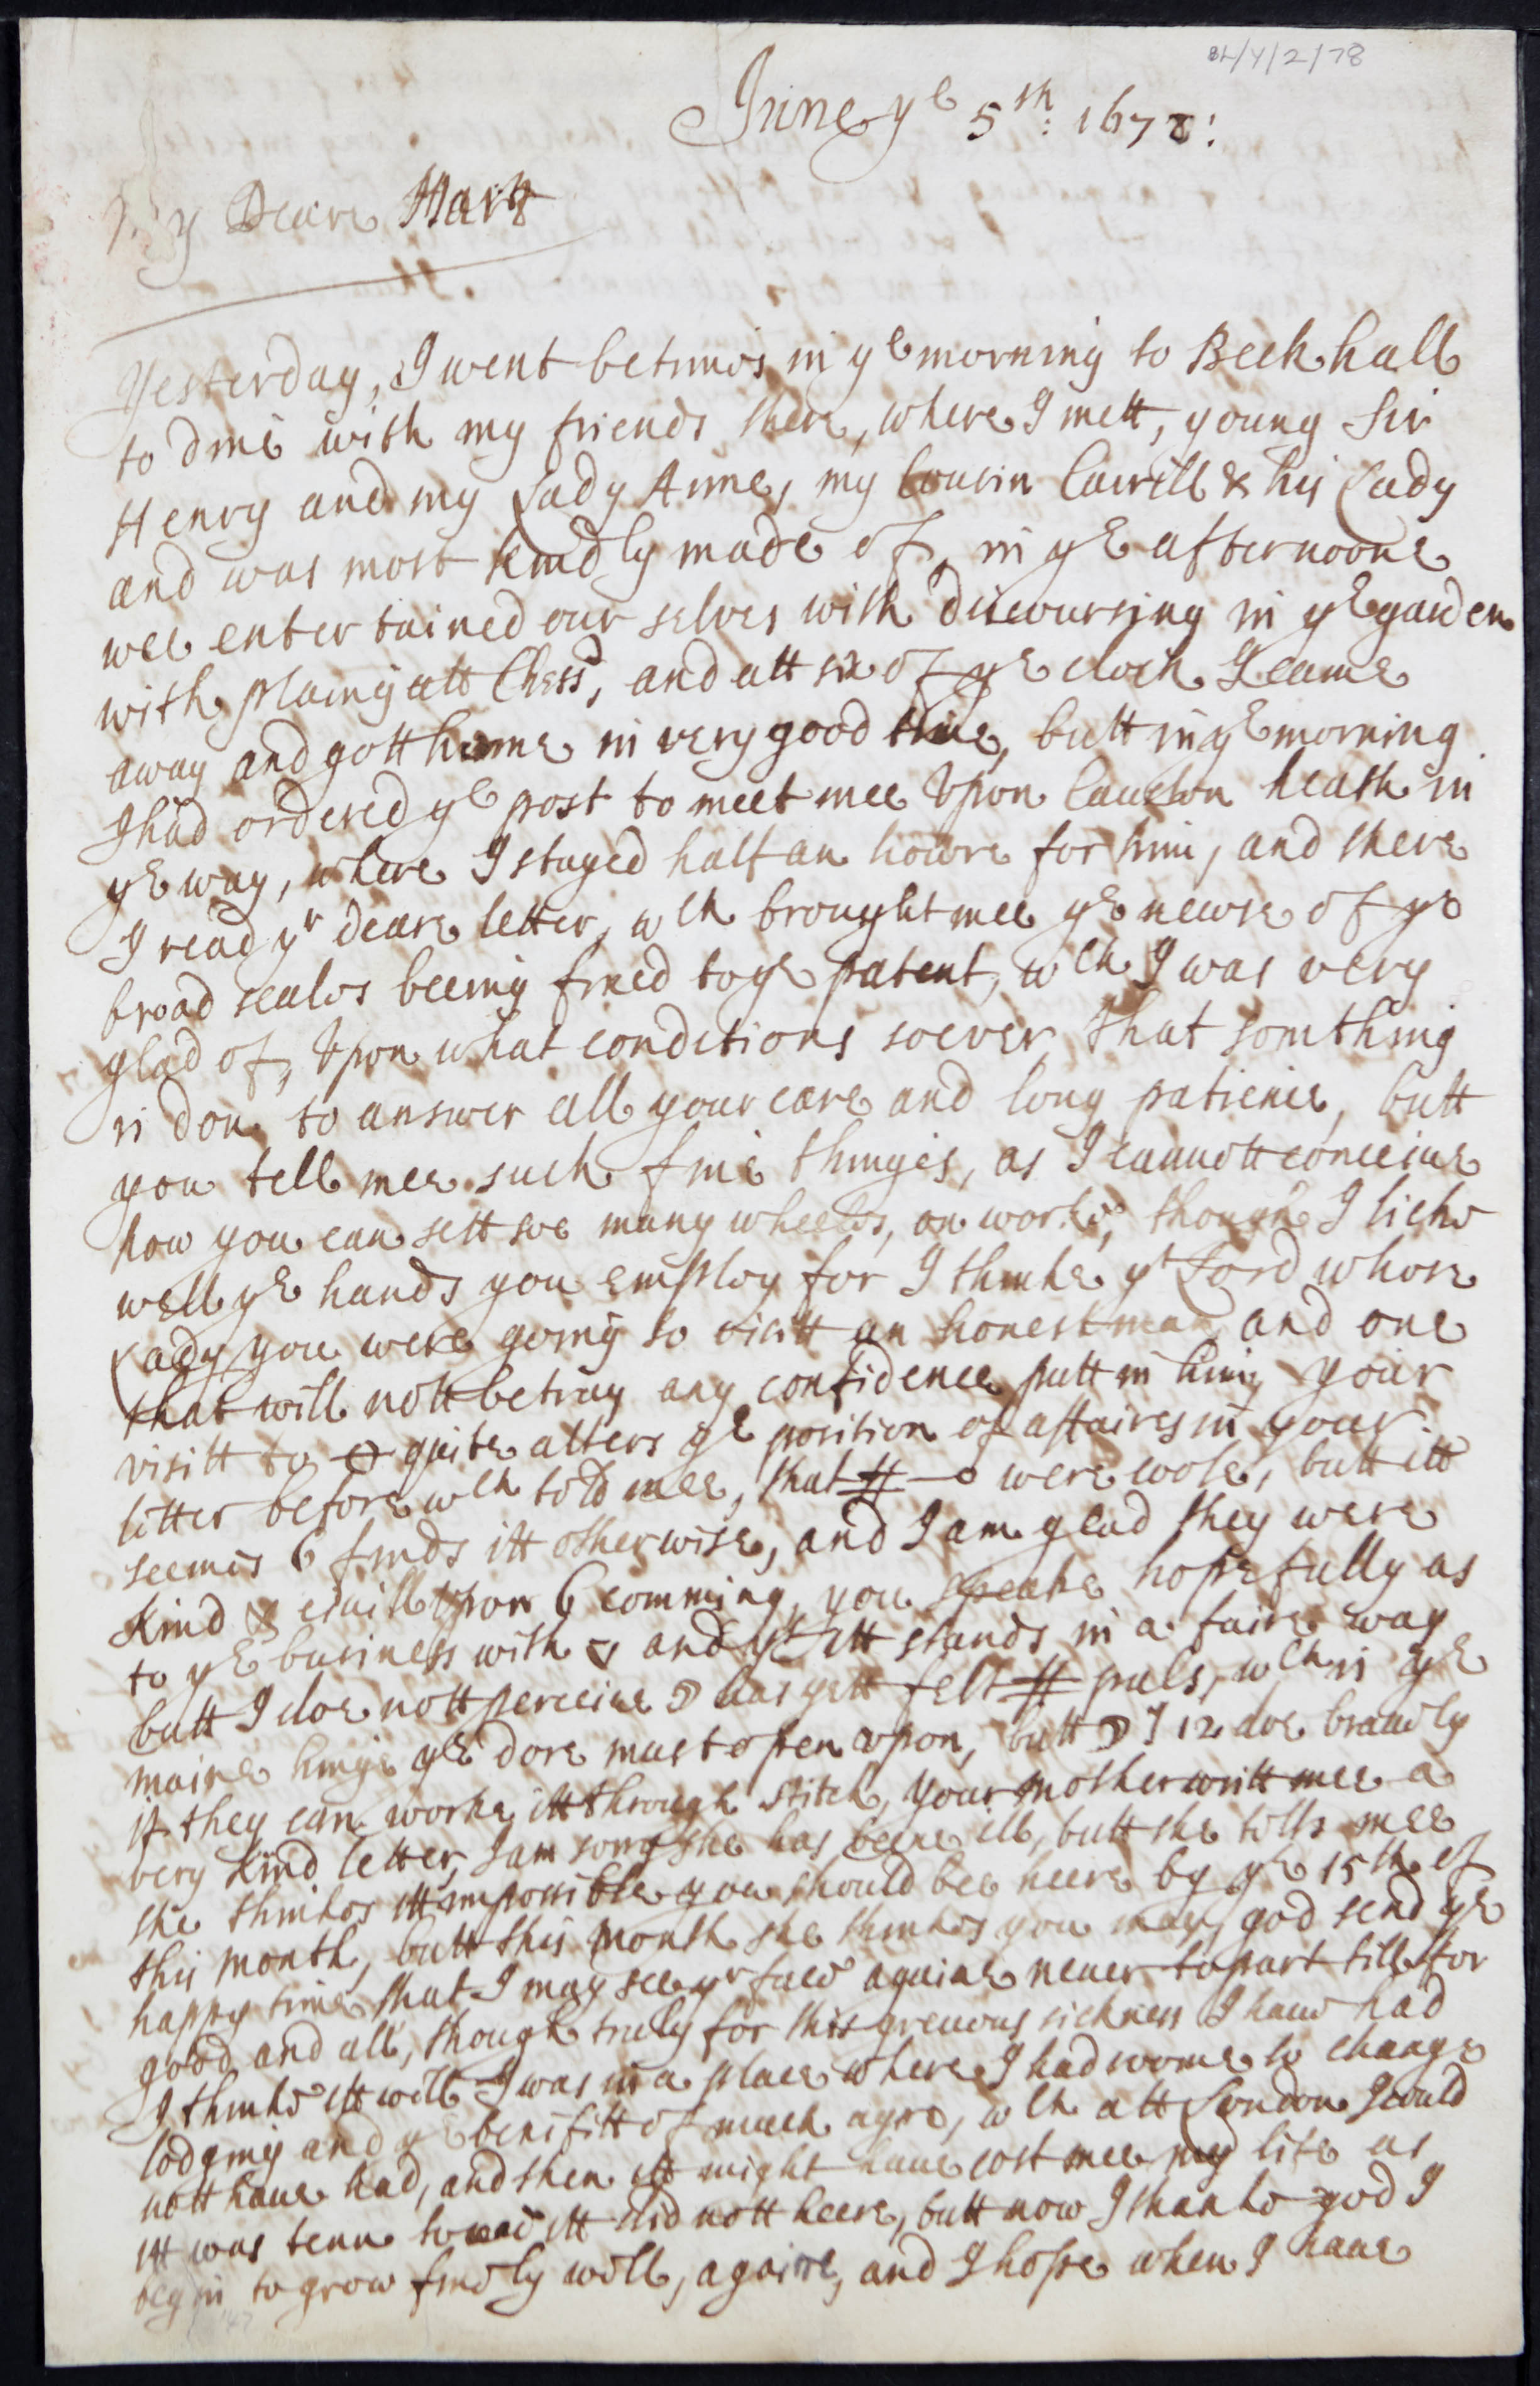 BL/Y/2/78
June ye 5th: 1678:
My Deare Hart
Yesterday, I went betimes in ye morning to Beck hall
to dine with my friends there, where I mett, young Sir
Henry and my Lady Anne, my Cousin & his Lady
and was most kindly made of, in ye afternoone
wee entertained our selves with discoursing in ye garden
with plaing att Chess, and att six of ye clock I came
away and gott home in very good time, butt in ye morning
I had ordered ye post to meet mee Upon Causton heath in
ye way, where I stayed half an howre for him, and there
I read yr deare letter, wch brought mee ye newse of ye
broad seales beeing fixed to ye patent, wch I was very
glad of, Upon what conditions soever, that somthing
is don to answer all your care and long patience, butt
you tell mee such fine thinges, as I cannott conceive
how you can sett soe many wheeles, on worke, though I licke
well ye hands you employ for I thinke yt Lord whose
Lady you were going to visitt an honest man and one
that will nott betray any confidence putt in him, your
visitt to quite alters ye position of affaires in your
letter before wch told mee, that # were cole, butt itt
seemes 6 finds itt otherwise, and I am glad they were
Kind & civill Upon 6 comming, you speake hopefully as
to ye business with and yt Itt stands in a faire way
butt I doe nott perceive has yett felt # puls, wch is ye
maine hinge ye dore must open upon, butt 12 doe bravely
if they can worke itt through stitch, your mother writt mee a
very kind letter, I am sorry she has beene ill, butt she tells mee
she thinkes itt impossible you should bee heere by ye 15th of
this month, butt this month she thinkes you may, god send ye
happy time that I may see yr face againe never to part till for
good and all, though truly for this grevous sickness I have had
I thinke itt well I was in a place where I had roome to change
lodging and ye benifitt of much ayre, wch att London I could
nott have had, and then itt might have cost mee my life as
itt was tenn to itt did nott heere, butt now I thanke god I
begin to grow finely well, againe, and I hope when I have